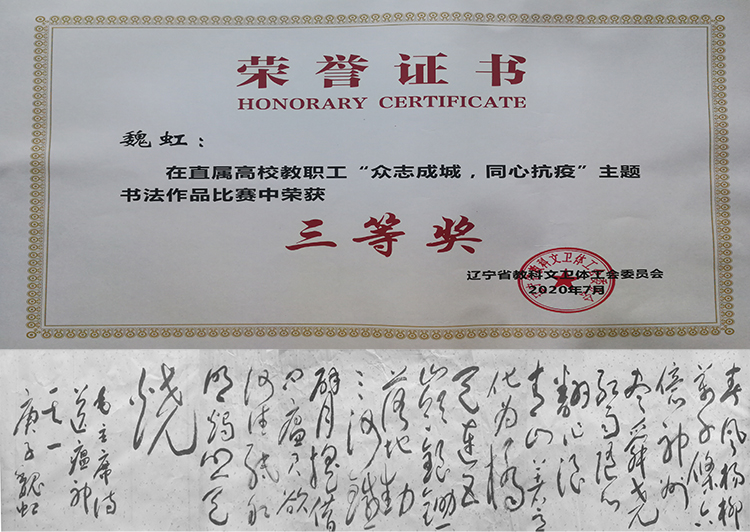 荣誉证书
HONORARY CERTIFICATE
魏虹：
在直属高校教职工“众志成城，同心抗疫”主题
书法作品比赛中荣获
三等奖
辽宁省教科文卫体工会委员会
2020年7月
春風楊柳
萬千條六
億神州
盡舜堯
紅雨隨心
翻作浪
青山着意
化为橋
天連五
嶺銀鋤
落地動
三河鐵
臂搖借
问瘟君欲
何往紙船
明燭照天
燒
毛主席诗
送瘟神
庚子魏虹